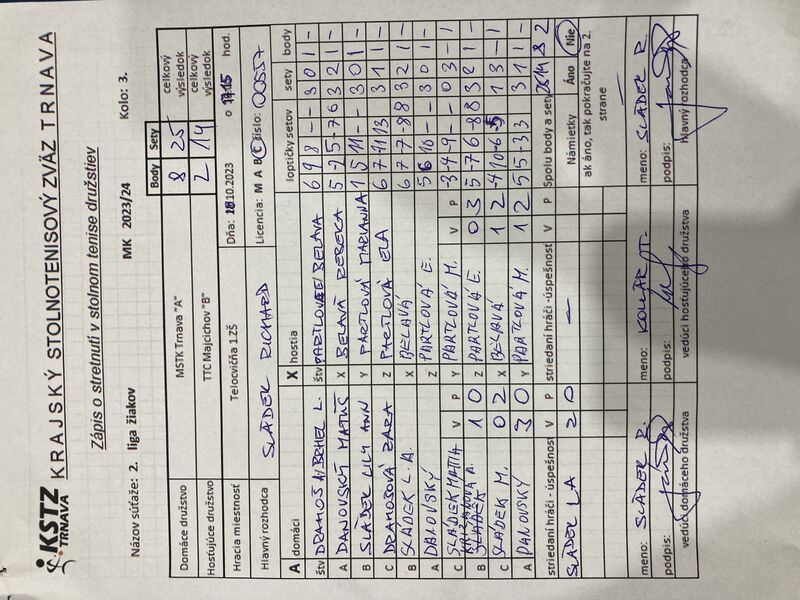 KSTZ
TRNAVA
KRAJSKÝ STOLNOTENISOVÝ ZVÄZ TRNAVA
Zápis o stretnutí v stolnom tenise družstiev
Názov súťaže: 2. liga žiakov MK 2023/24 Kolo: 3.
Body Sety
Domáce družstvo MSTK Trnava "A" 8 25 celkový výsledok
Hosťujúce družstvo TTC Majcichov "B" 2 14 celkový výsledok
Hracia miestnosť Telocvičňa 1.ZŠ Dňa: 18.10.2023 o hod.
Hlavný rozhodca SLÁDEK RICHARD Licencia: M A B C číslo: 00557
A domáci X hostia loptičky setov sety body
štv BRHEL L. štv BELAVÁ 6 9 8 - - 3 0 1 -
A DANOVSKÝ MATÚŠ X BELAVÁ REBEKA 5 -5 -7 6 3 2 1 -
B SLÁDEK LILY ANN Y PARTLOVÁ MARIANNA 3 0 1 -
C DRAHOŠOVÁ ZARA Z PARTLOVÁ ELA 6 7 3 1 1 -
B SLÁDEK L.A X BELAVÁ 6 7 7 -8 8 3 2 1 -
A DANOVSKÝ Z PARTLOVÁ E. 3 0 1 -
C Y PARTLOVÁ M. -3 -4 -9 - - 0 3 - 1
B SLÁDEK 1 0 Z PARTLOVÁ E. 0 3 5 -7 6 -8 8 3 2 1 -
C SLÁDEK M. 0 2 X BELAVÁ 1 2 -4 1 3 - 1
A DANOVSKÝ 3 0 Y PARTLOVÁ M. 1 2 5 5 -3 3 3 1 1 -
striedaní hráči - úspešnosť V P striedaní hráči - úspešnosť V P Spolu body a sety 25 14 8 2
SLÁDEK LA 2 0 —
Námietky Áno Nie
ak áno, tak pokračujte na 2. strane
meno: SLÁDEK R. meno: meno: SLÁDEK R.
podpis: podpis: podpis:
vedúci domáceho družstva vedúci hosťujúceho družstva hlavný rozhodca